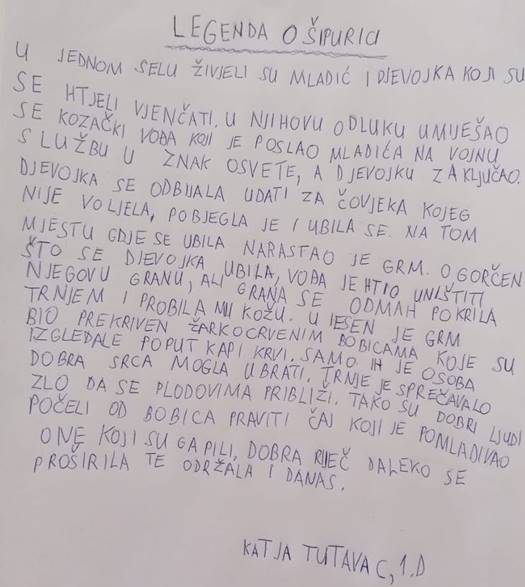 LEGENDA O ŠIPURICI
U JEDNOM SELU ŽIVJELI SU MLADIĆ I DJEVOJKA KOJI SU
SE HTJELI VJENČATI. U NJIHOVU ODLUKU UMIJEŠAO
SE KOZAČKI VOĐA KOJI JE POSLAO MLADIĆA NA VOJNU
SLUŽBU U ZNAK OSVETE, A DJEVOJKU ZAKLJUČAO.
DJEVOJKA SE ODBIJALA UDATI ZA ČOVJEKA KOJEG
NIJE VOLJELA, POBJEGLA JE I UBILA SE. NA TOM
MJESTU GDJE SE UBILA NARASTAO JE GRM. OGORČEN
ŠTO SE DJEVOJKA UBILA, VOĐA JE HTIO UNIŠTITI
NJEGOVU GRANU, ALI GRANA SE ODMAH POKRILA
TRNJEM I PROBILA MU KOŽU. U JESEN JE GRM
BIO PREKRIVEN ŽARKOCRVENIM BOBICAMA KOJE SU
IZGLEDALE POPUT KAPI KRVI. SAMO IH JE OSOBA
DOBRA SRCA MOGLA UBRATI. TRNJE JE SPREČAVALO
ZLO DA SE PLODOVIMA PRIBLIŽI. TAKO SU DOBRI LJUDI
POČELI OD BOBICA PRAVITI ČAJ KOJI JE POMLAĐIVAO
ONE KOJI SU GA PILI, DOBRA RIJEČ DALEKO SE
PROŠIRILA TE ODRŽALA I DANAS.
KATJA TUTAVAC, 1.D